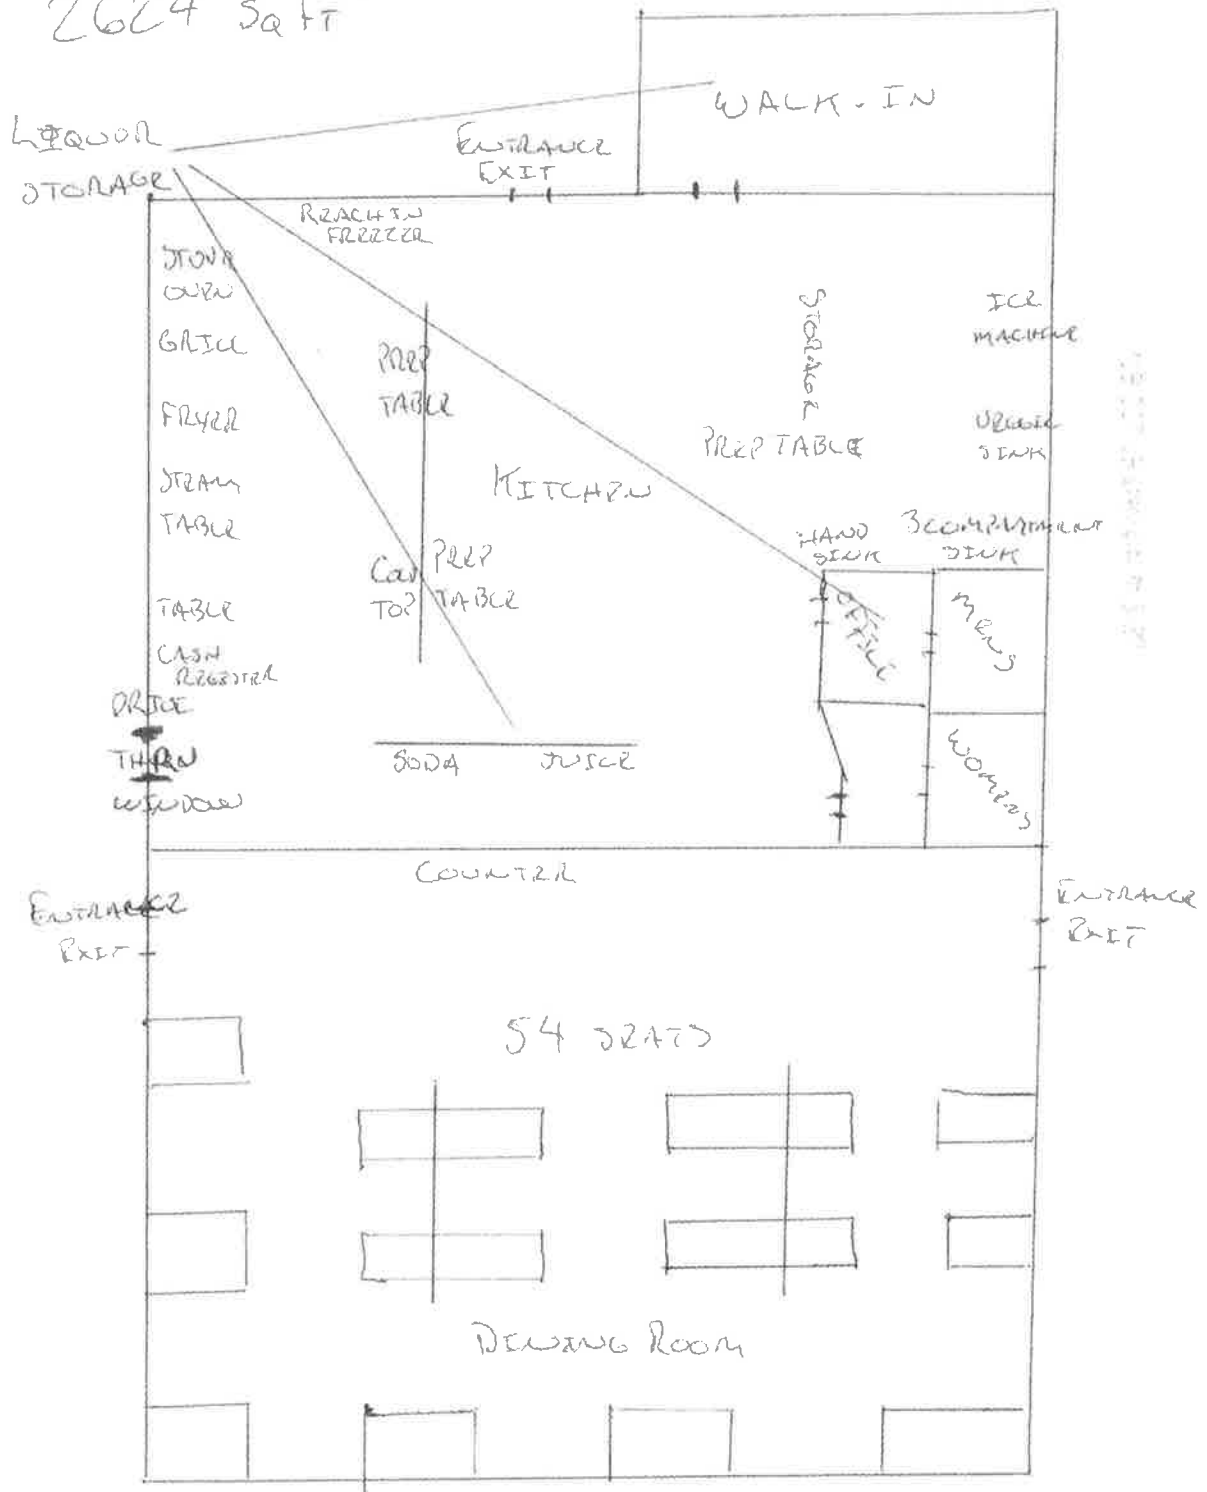 2624 Sq FT
WALK-IN
LIQUOR
STORAGE
ENTRANCE
EXIT
REACH IN
FREEZER
STOVE
OVEN
GRILL
FRYER
STEAM
TABLE
TABLE
CASH
REGISTER
DRIVE
THRU
WINDOW
PREP
TABLE
KITCHEN
PREP
TABLE
TOP
STORAGE
PREP TABLE
ICE
MACHINE
SINK
HAND
SINK
3 COMPARTMENT
SINK
OFFICE
MENS
WOMENS
SODA
JUICE
COUNTER
ENTRANCE
EXIT
ENTRANCE
EXIT
54 SEATS
DINING ROOM